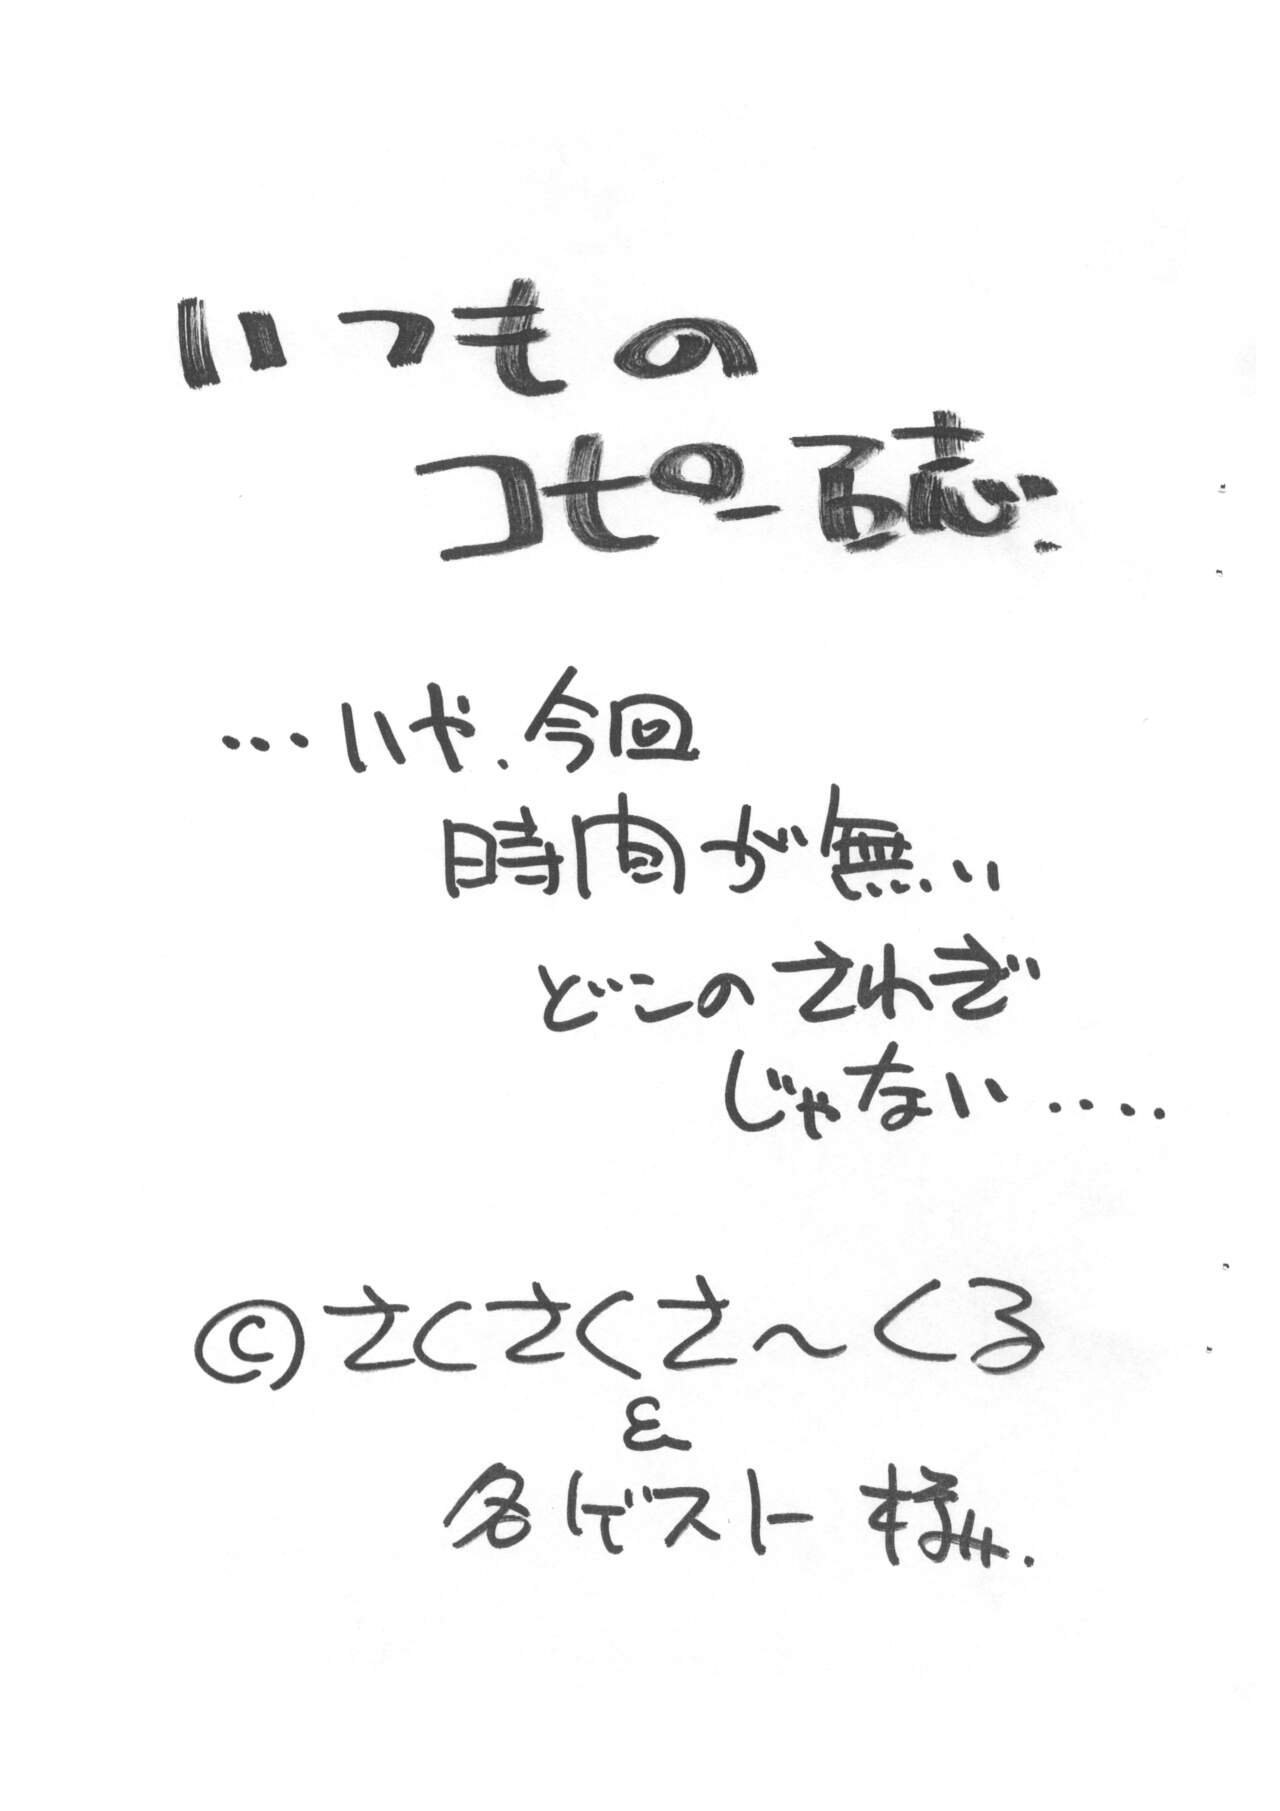 いつもの
コピー誌
…いや.今回
時間が無い
どこのさわぎ
じゃない....
©さくさくさ～くる
&
各ゲスト様.